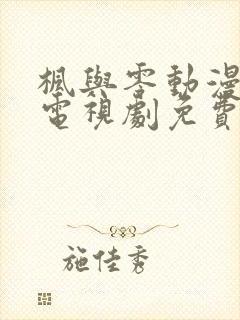 楓與零動漫
電視劇免費
施佳秀